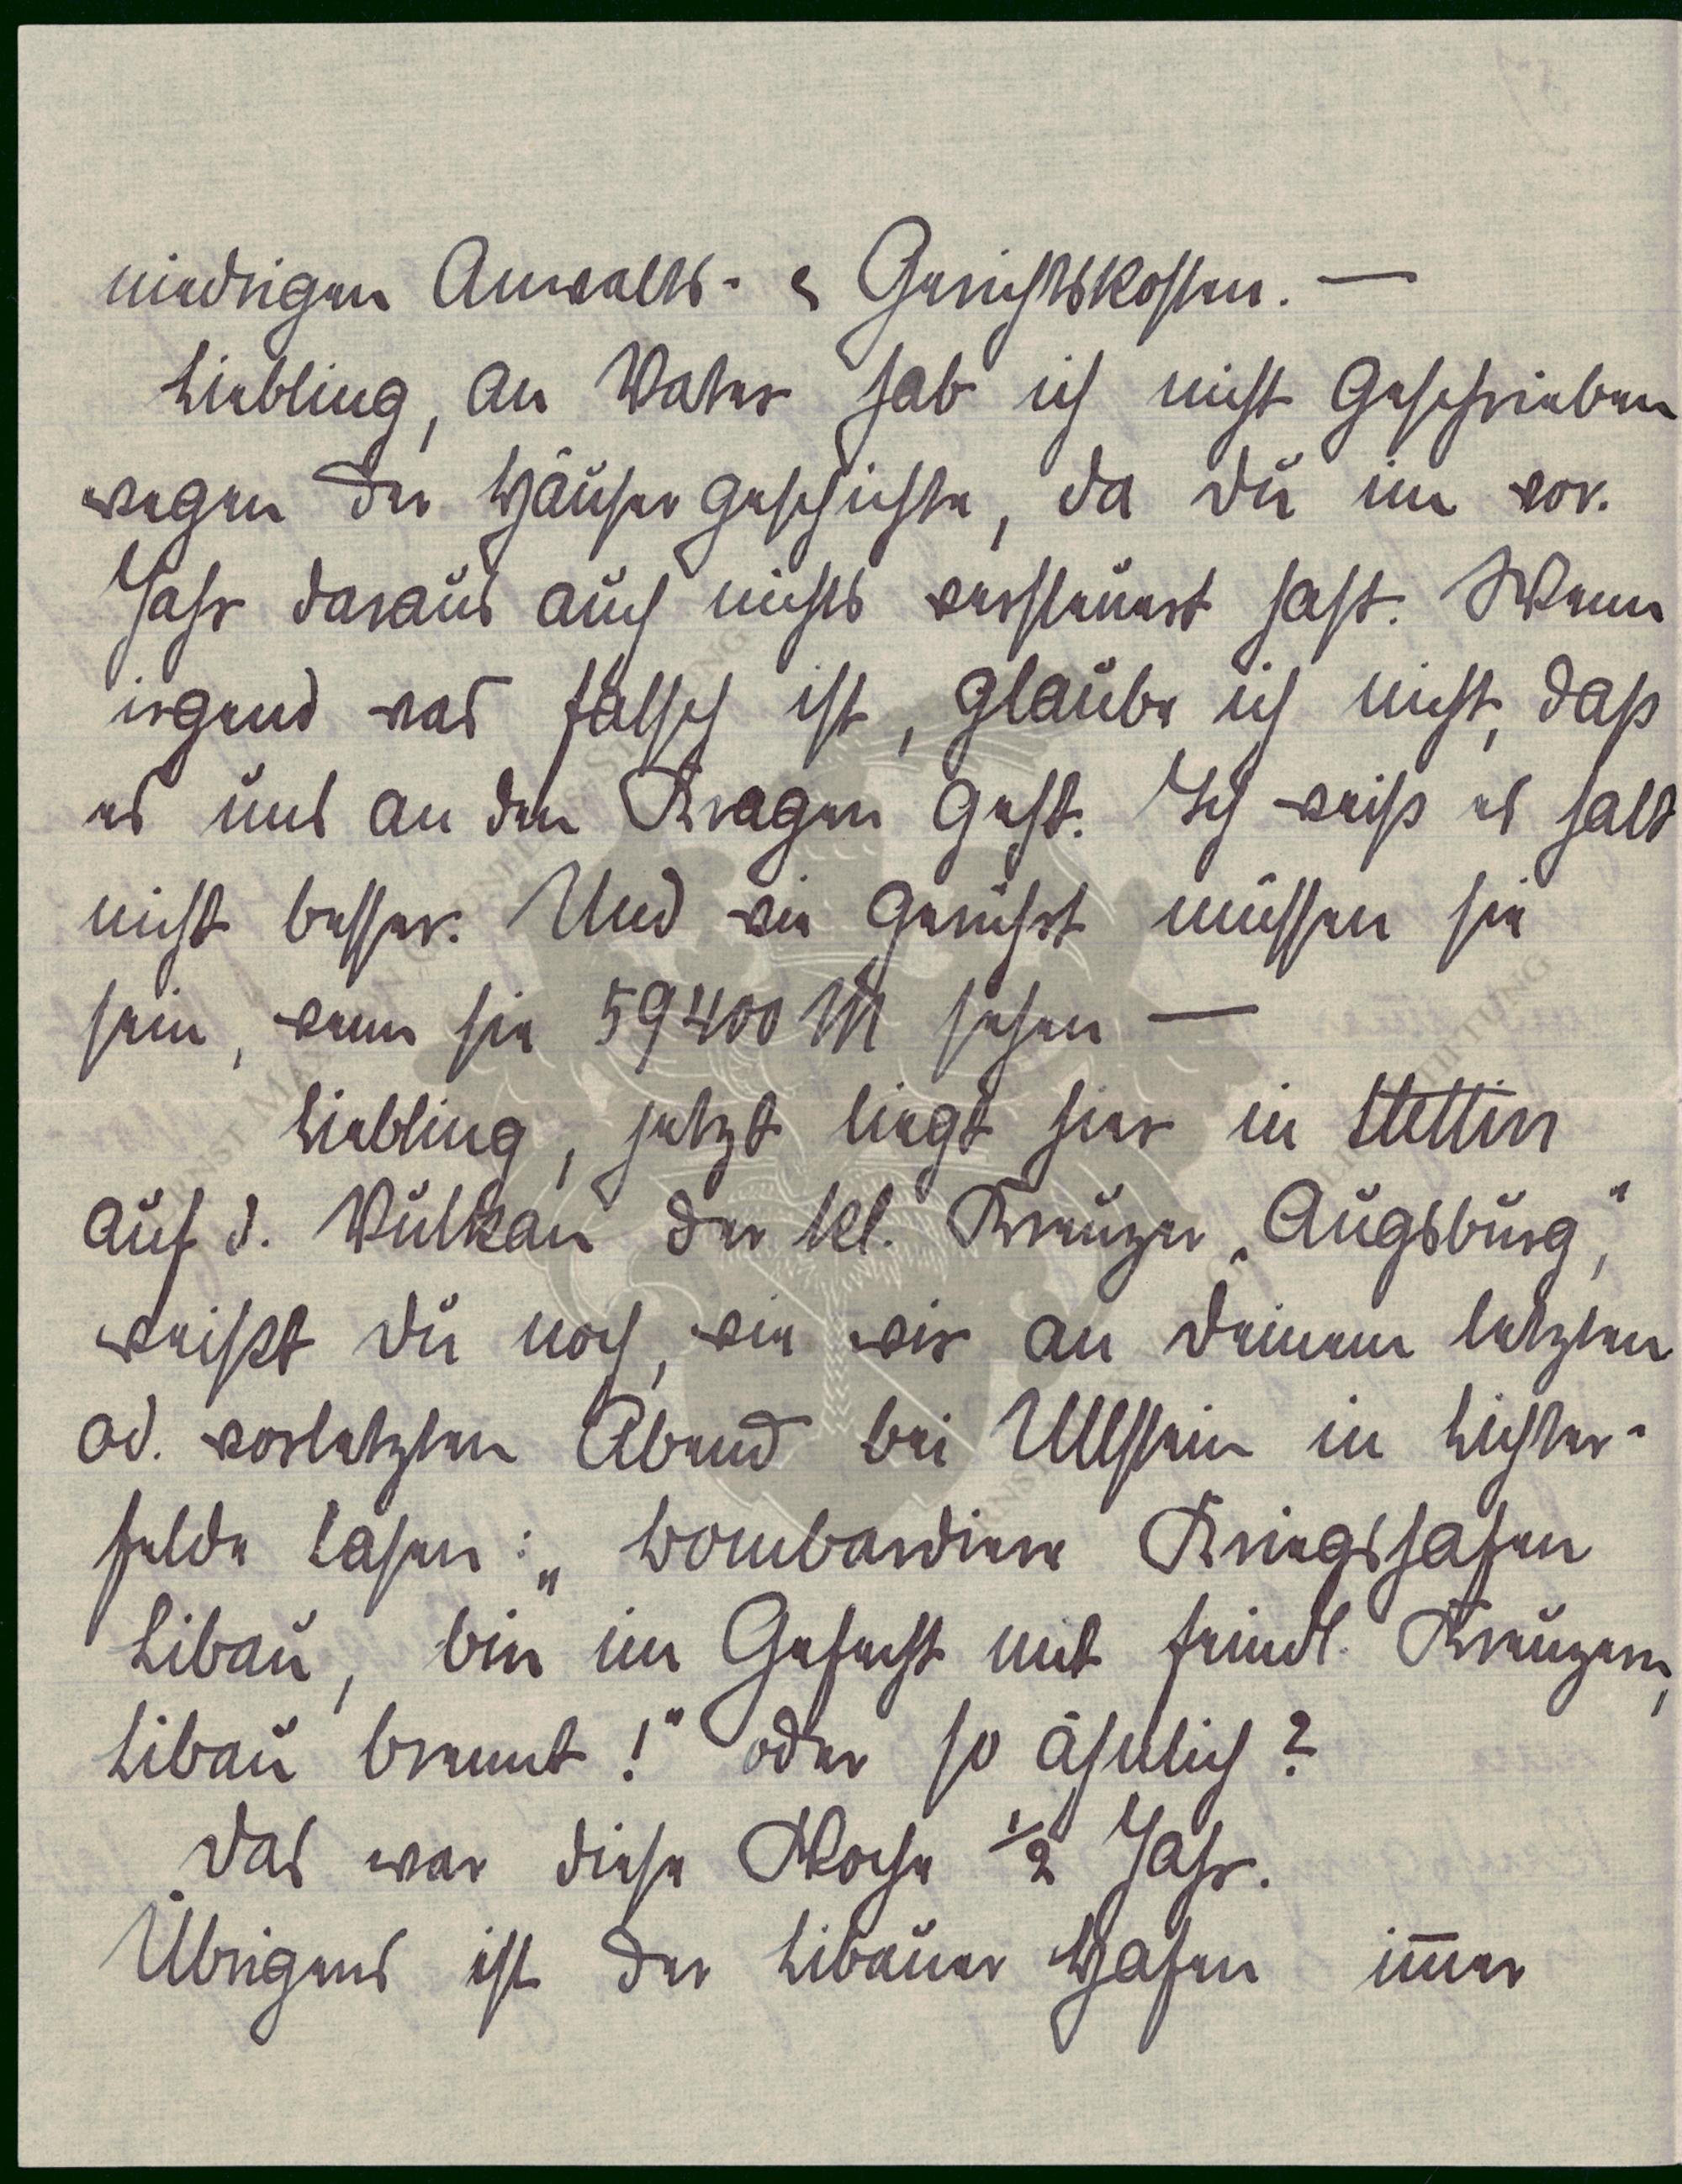 niedrigen Anwalts- & Gerichtskosten. —
Liebling, an Vater hab ich nicht geschrieben
wegen der Häusergeschichte, da Du im vor.
Jahr daraus auch nichts versteuert hast. Wenn
irgend was falsch ist, glaube ich nicht, daß
es uns an den Kragen geht. Ich weiß es halt
nicht besser. Und wie gerührt müssen sie
sein, wenn sie 59400 M sehen —
Liebling, jetzt liegt hier in Stettin
auf d. Vulkan der kl. Kreuzer „Augsburg",
weißt Du noch, wie wir an Deinem letzten
od. vorletzten Abend bei Ullstein in Lichter-
felde lasen: „bombardiere Kriegshafen
Libau, bin im Gefecht mit feindl. Kreuzern,
Libau brennt!" oder so ähnlich?
Das war diese Woche 1/2 Jahr.
Übrigens ist der Libauer Hafen im̅er